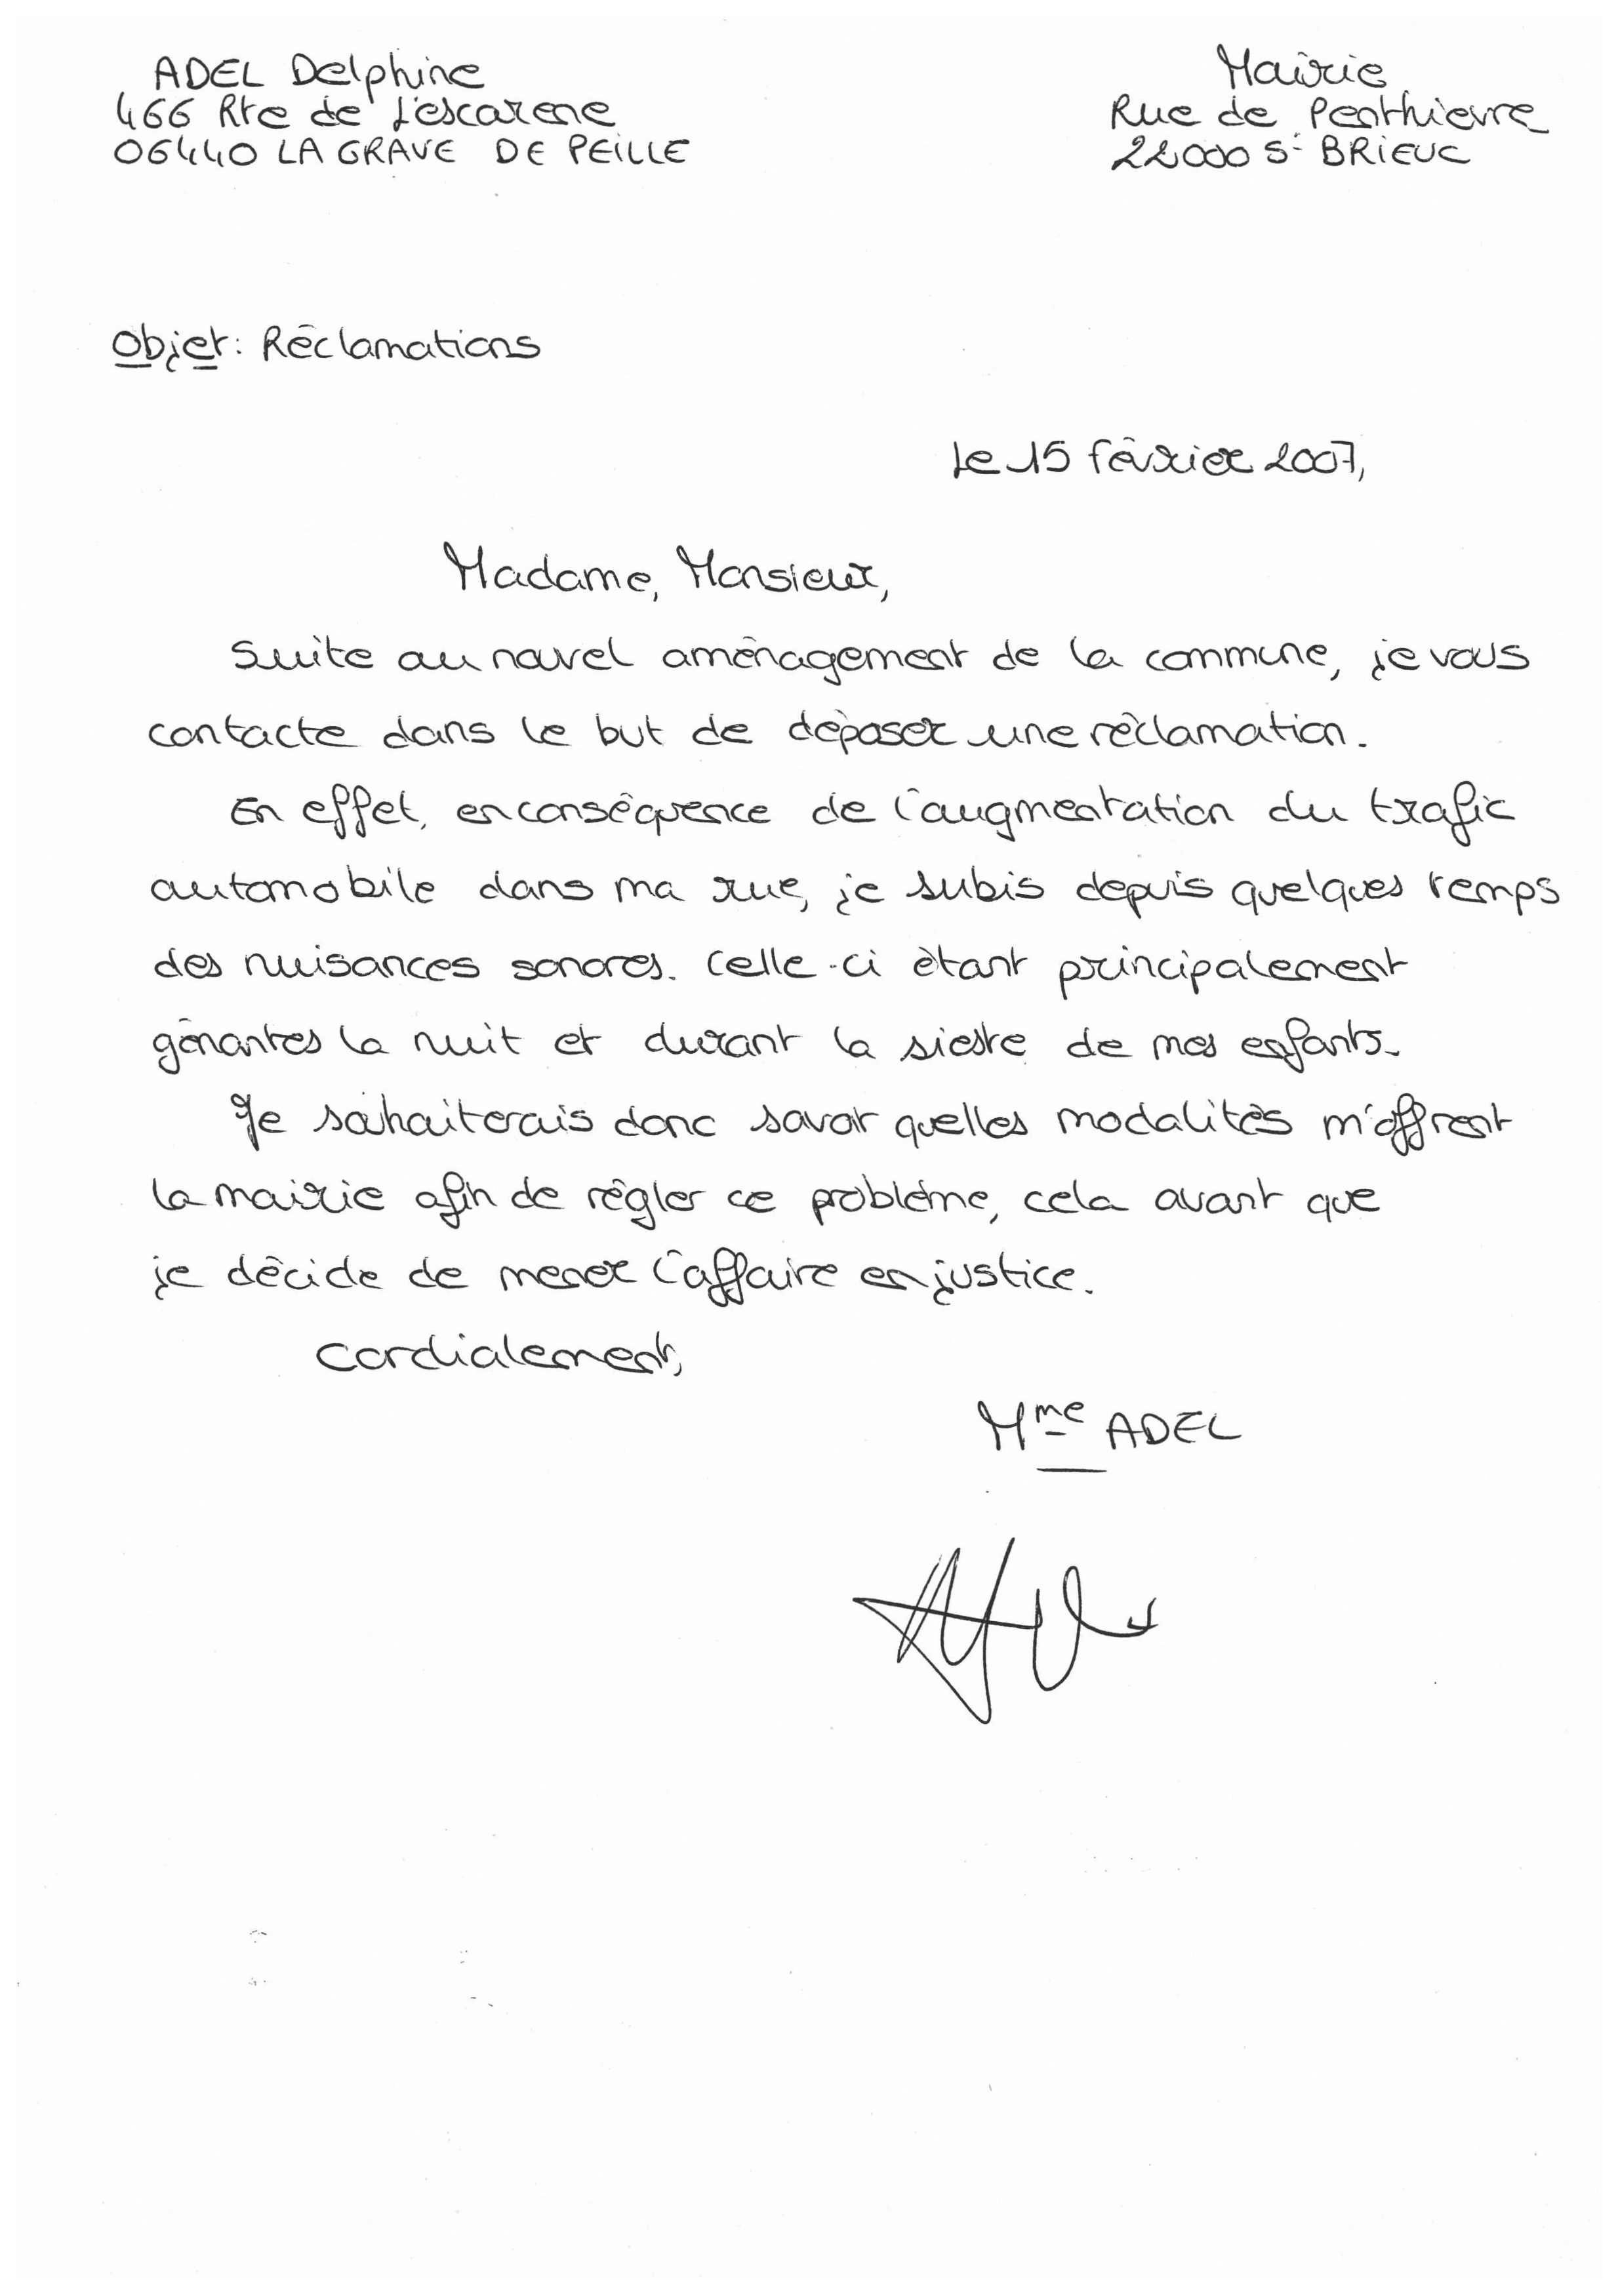 ADEL Delphine
466 Rte de L'escarene
06440 LA GRAVE DE PEILLE
Mairie
Rue de Penthievre
22000 St BRIEUC
Objet: Réclamations
Le 15 février 2007,
Madame, Monsieur,
Suite au nouvel aménagement de la commune, je vous
contacte dans le but de déposer une réclamation.
En effet, en conséquence de l'augmentation du trafic
automobile dans ma rue, je subis depuis quelques temps
des nuisances sonores. Celle-ci étant principalement
gênantes la nuit et durant la sieste de mes enfants.
Je souhaiterais donc savoir quelles modalités m'offrent
la mairie afin de régler ce problème, cela avant que
je décide de mener l'affaire en justice.
Cordialement,
Mme ADEL